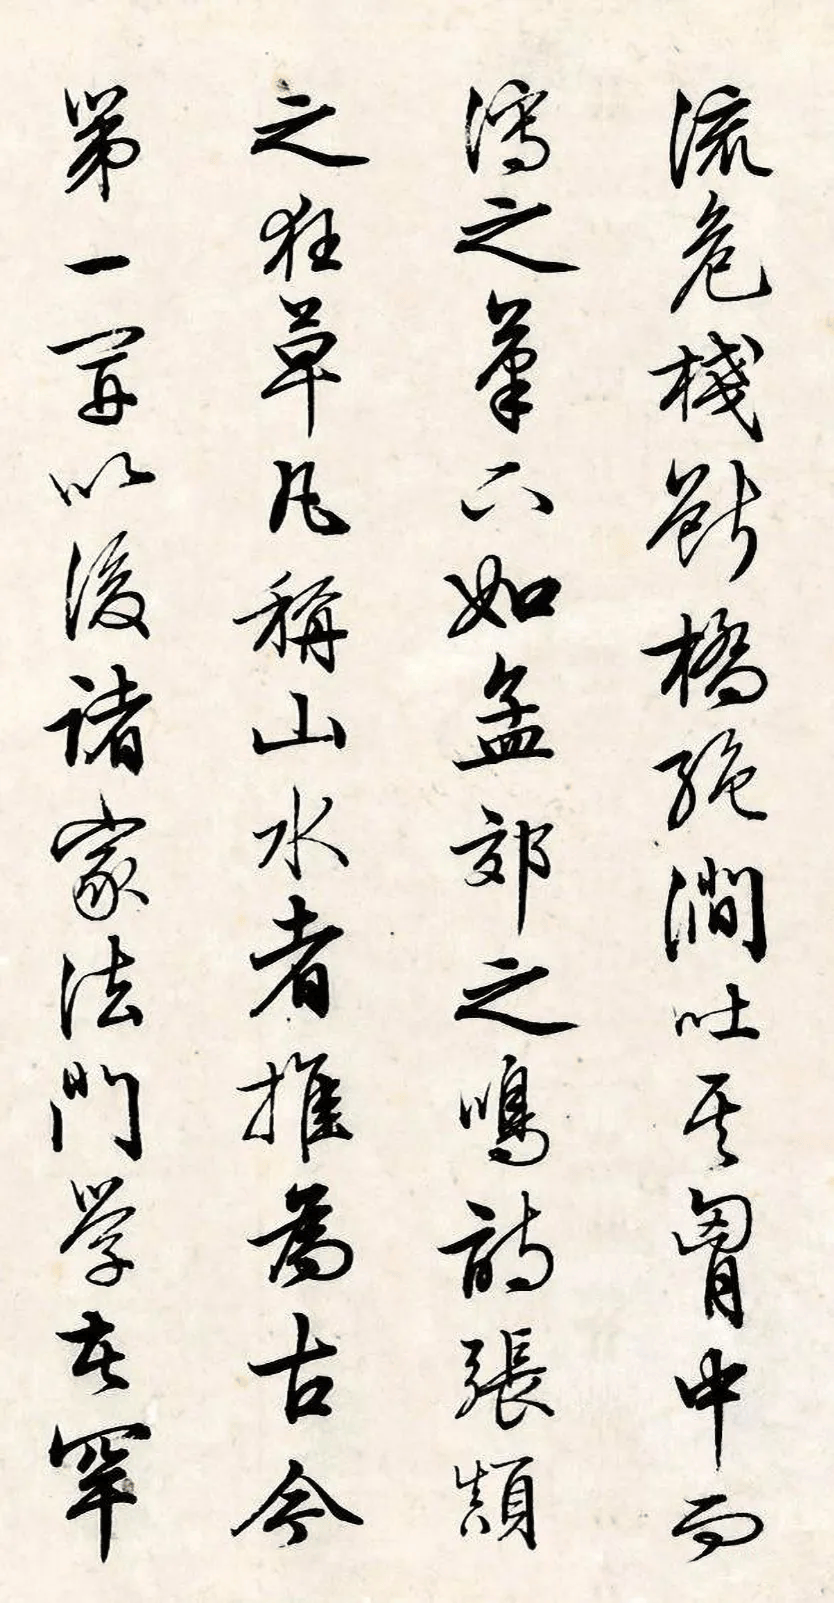 流危棧斷橋絶澗吐其胷中而
瀉之筆下如孟郊之鳴詩張顛
之狂草凡稱山水者推為古今
第一寧以後諸家法門學者罕